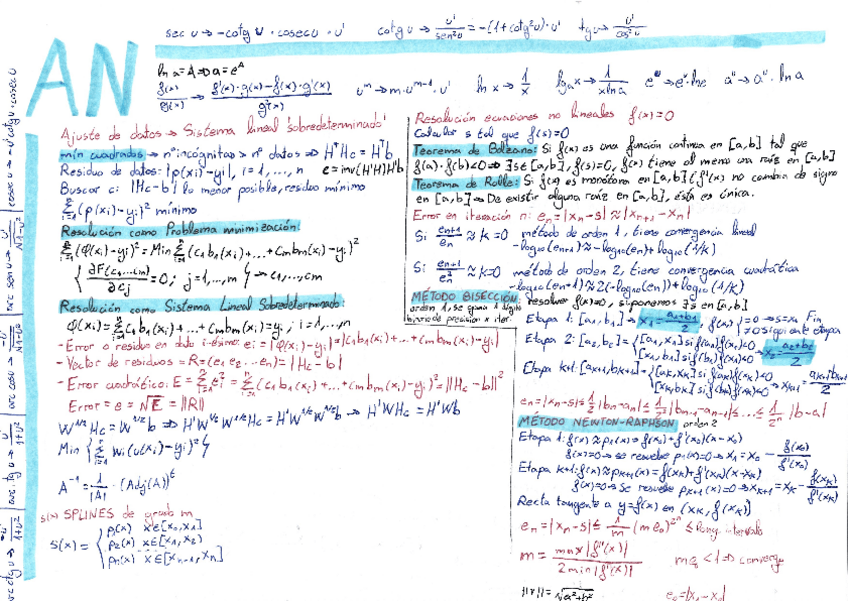 sec u → -cotg u · cosec u · u'   cotg u → u'/sen²u = -(1+cotg²u)·u'   tg u → u'/cos²u
AN
ln a = A ⇒ a = e^A
f(x)/g(x) → (f'(x)·g(x) - f(x)·g'(x))/g²(x)   u^m → m·u^(m-1)·u'   ln x → 1/x   lg_a x → 1/(x ln a)   e^u → e^u·ln e   a^u → a^u · ln a
Ajuste de datos → Sistema lineal 'sobredeterminado'
mín cuadrados → nº incógnitas > nº datos ⇒ HᵗHc = Hᵗb
Residuo de datos: |p(xi)-yi|, i=1,..., n   c = inv(H'H)H'b
Buscar c: ||Hc-b|| lo menor posible, residuo mínimo
Σ(p(xi)-yi)² mínimo
Resolución como Problema minimización:
Σ(φ(xi)-yi)² = Min Σ(c1b1(xi)+...+cmbm(xi)-yi)²
{ ∂F(c1,...cm)/∂cj = 0; j=1,...,m } → c1,...,cm
Resolución como Sistema Lineal Sobredeterminado:
φ(xi) = c1b1(xi)+...+cmbm(xi)=yi, i=1,...,n
- Error o residuo en dato i-ésimo: ei=|φ(xi)-yi|=|c1b1(xi)+...+cmbm(xi)-yi|
- Vector de residuos = R=(e1 e2...en)=|Hc-b|
- Error cuadrático: E = Σei² = Σ(c1b1(xi)+...+cmbm(xi)-yi)² = ||Hc-b||²
Error = e = √E = ||R||
W^(1/2)Hc = W^(1/2)b ⇒ H'W^(1/2)W^(1/2)Hc = H'W^(1/2)W^(1/2)b ⇒ H'WHc = H'Wb
Min { Σ wi(u(xi)-yi)² }
A⁻¹ = 1/|A| · (Adj(A))ᵗ
s(x) SPLINES de grado m
S(x) = { p1(x) x∈[x0,x1]
p2(x) x∈[x1,x2)
pn(x) x∈[xn-1,xn]
Resolución ecuaciones no lineales f(x)=0
Calcular s tal que f(s)=0
Teorema de Bolzano: Si f(x) es una función continua en [a,b] tal que
f(a)·f(b)<0 ⇒ ∃s∈[a,b], f(s)=0, f(x) tiene al menos una raíz en [a,b]
Teorema de Rolle: Si f(x) es monótona en [a,b] (f'(x) no cambia de signo
en [a,b] → De existir alguna raíz en [a,b], ésta es única.
Error en iteración n: en = |xn-s| ≈ |xn+1 - xn|
Si en+1/en ≈ K = 0 método de orden 1, tiene convergencia lineal
-log10(en+1) ≈ -log10(en)+log10(1/K)
Si en+1/en² ≈ K ≠ 0 método de orden 2, tiene convergencia cuadrática
-log10(en+1) ≈ 2(-log10(en))+log10(1/K)
MÉTODO BISECCIÓN resolver f(x)=0, suponemos ∃s en [a,b]
orden 1, se gana 1 dígito
binario de precisión x iter.
Etapa 1: [a1,b1] → x1 = (a1+b1)/2, f(x1) { =0 → s=x1 Fin
≠0 siguiente etapa
Etapa 2: [a2,b2] = { [a1,x1] si f(a1)f(x1)<0
[x1,b1] si f(b1)f(x1)<0 → x2 = (a2+b2)/2
Etapa k+1: [ak+1,bk+1] = { [ak,xk] si f(ak)f(xk)<0
[xk,bk] si f(bk)f(xk)<0 → xk+1 = (ak+1+bk+1)/2
en = |xn-s| ≤ 1/2|bn-an| ≤ 1/2²|bn-1-an-1| ≤ ... ≤ 1/2ⁿ |b-a|
MÉTODO NEWTON-RAPHSON orden 2
Etapa 1: f(x) ≈ p1(x) = f(x0)+f'(x0)(x-x0)
f(x)=0 → se resuelve p1(x)=0 → x1 = x0 - f(x0)/f'(x0)
Etapa k+1: f(x) ≈ pk+1(x) = f(xk)+f'(xk)(x-xk)
f(x)=0 → se resuelve pk+1(x)=0 → xk+1 = xk - f(xk)/f'(xk)
Recta tangente a y=f(x) en (xk, f(xk))
en = |xn-s| ≤ 1/m (m e0)^(2ⁿ) ≤ long. intervalo
m = max|f''(x)| / 2min|f'(x)|   m e0 < 1 ⇒ converge
e0 = |x1 - x0|